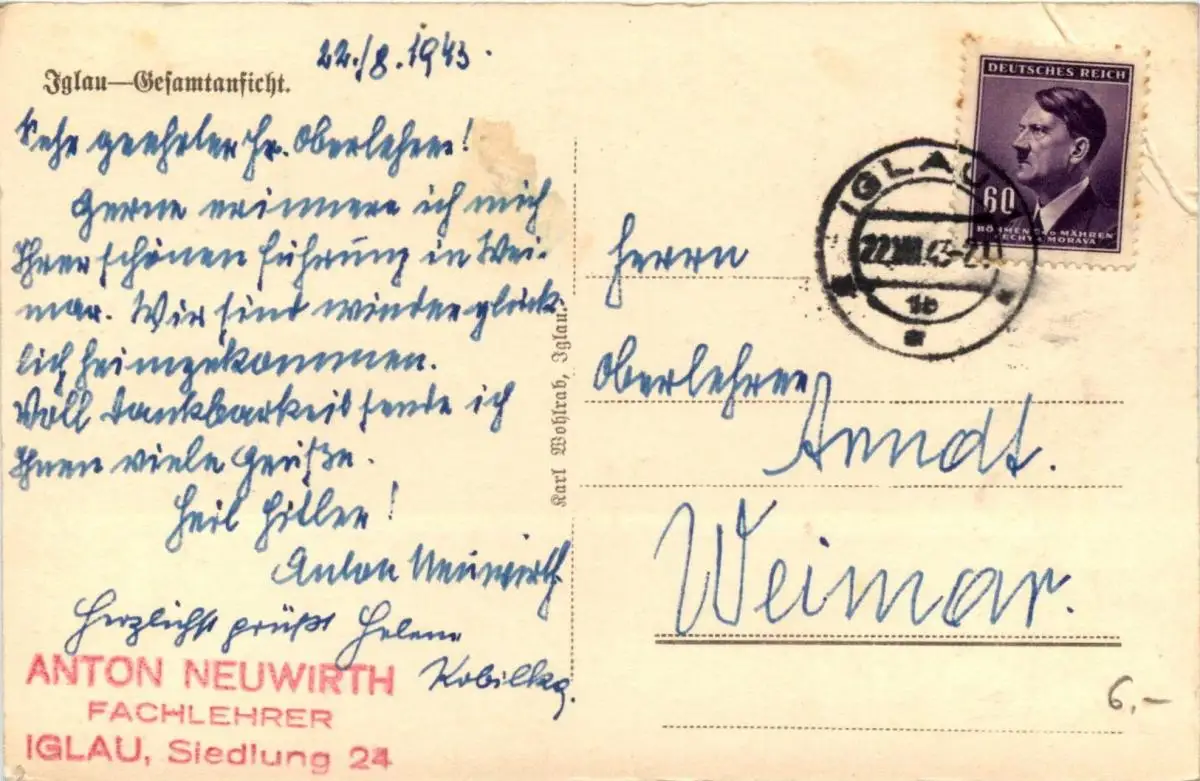 22./8.1943.
Iglau—Gesamtansicht.
Sehr geehrter Hr. Oberlehrer!
Gerne erinnere ich mich
Ihrer schönen Führung in Wei-
mar. Wir sind wieder glück-
lich heimgekommen.
Voll Dankbarkeit sende ich
Ihnen viele Grüße.
Heil Hitler!
Anton Neuwirth
Herzlichst grüßt Helene
Kobilka.
ANTON NEUWIRTH
FACHLEHRER
IGLAU, Siedlung 24
Karl Wohlrab, Iglau.
DEUTSCHES REICH
60
BÖHMEN UND MÄHREN
ČECHY A MORAVA
IGLAU
22.VIII.43-
1b
Herrn
Oberlehrer
Arndt.
Weimar.
6.-